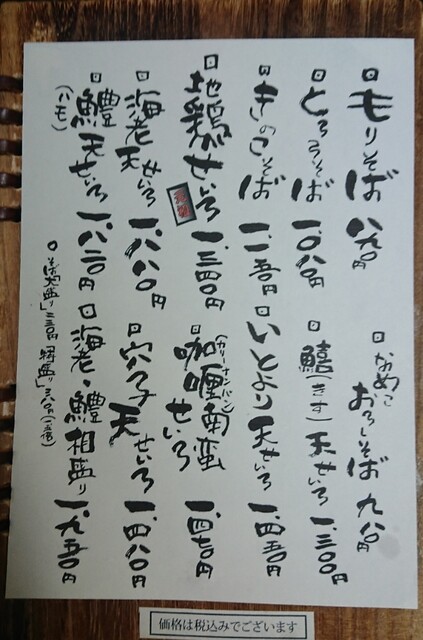 もりそば 八九〇円
なめこおろしそば 九八〇円
とろろそば 一、〇八〇円
鱚(きす)天せいろ 一、三〇〇円
きのこそば 一、一二〇円
いとより天せいろ 一、四五〇円
地鶏せいろ 一、三四〇円
咖喱南蛮(カリーナンバン)せいろ 一、四七〇円
海老天せいろ 一、八八〇円
穴子天せいろ 一、四八〇円
鱧(ハモ)天せいろ 一、八二〇円
海老・鱧相盛り 一、九五〇円
そば大盛り」二三〇円 特盛り」三八〇円
価格は税込みでございます